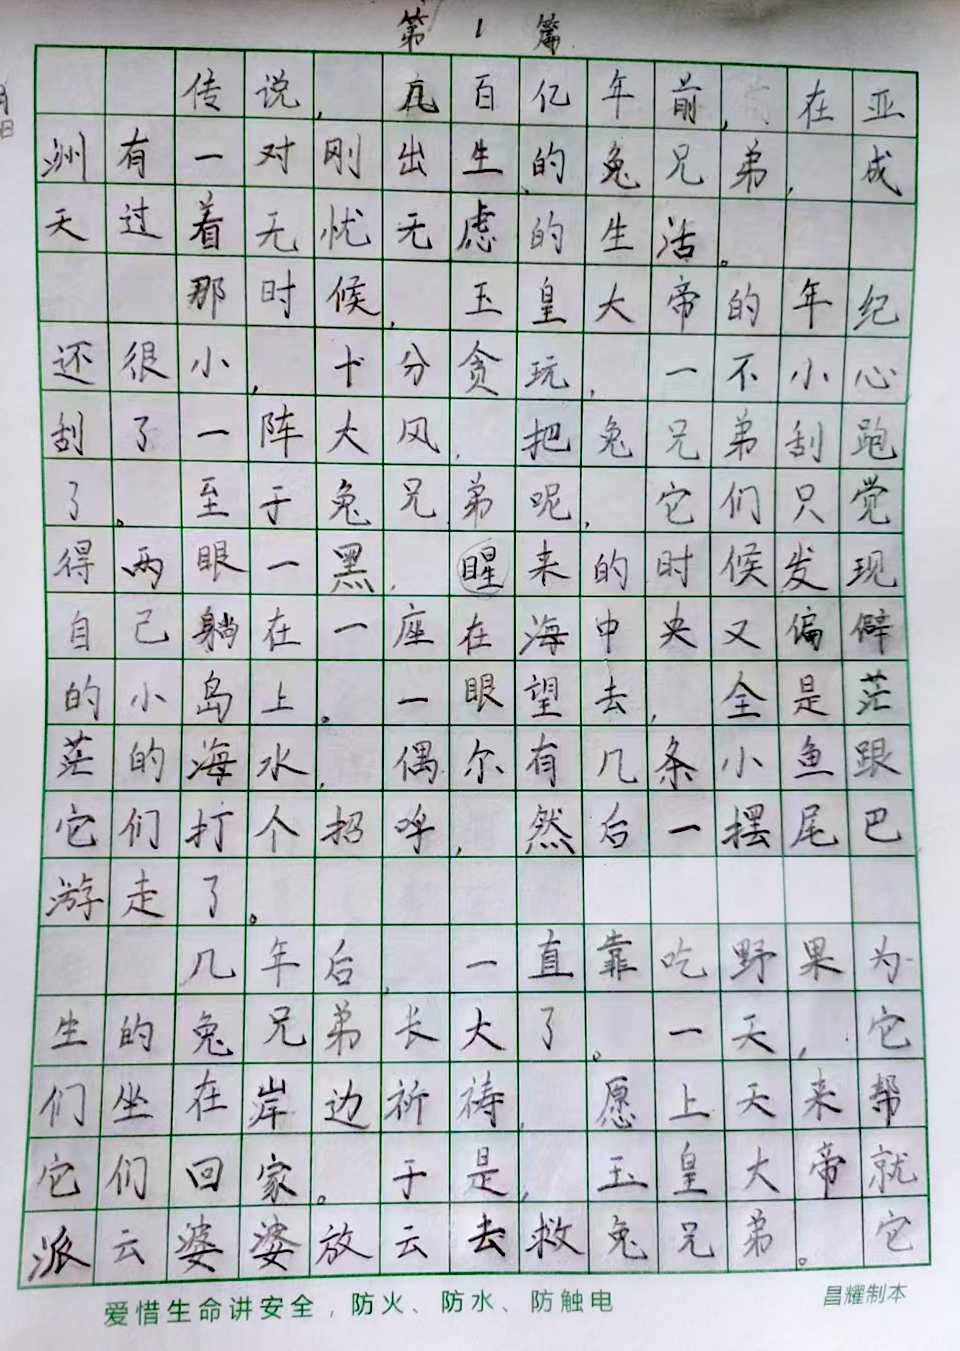 第1篇
传说，几百亿年前，在亚
洲有一对刚出生的兔兄弟，成
天过着无忧无虑的生活。
那时候，玉皇大帝的年纪
还很小，十分贪玩，一不小心
刮了一阵大风，把兔兄弟刮跑
了。至于兔兄弟呢，它们只觉
得两眼一黑，醒来的时候发现
自己躺在一座在海中央又偏僻
的小岛上。一眼望去，全是茫
茫的海水，偶尔有几条小鱼跟
它们打个招呼，然后一摆尾巴
游走了。
几年后，一直靠吃野果为
生的兔兄弟长大了。一天，它
们坐在岸边祈祷，愿上天来帮
它们回家。于是，玉皇大帝就
派云婆婆放云去救兔兄弟。它
爱惜生命讲安全，防火、防水、防触电
昌耀制本